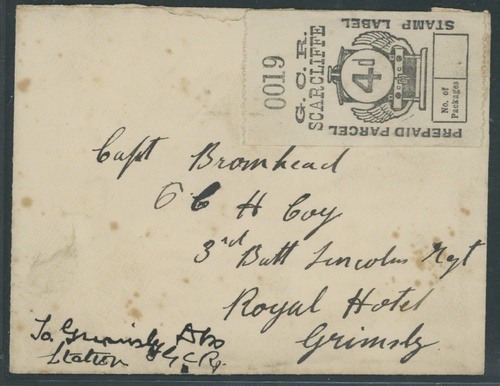 PREPAID PARCEL
STAMP LABEL
4d
No. of
Packages
G. C. R.
SCARCLIFFE
0019
Capt Bromhead
6 C H Coy
3rd Batt Lincolns Regt
Royal Hotel
Grimsby
To Grimsby
Station G.C.Ry.